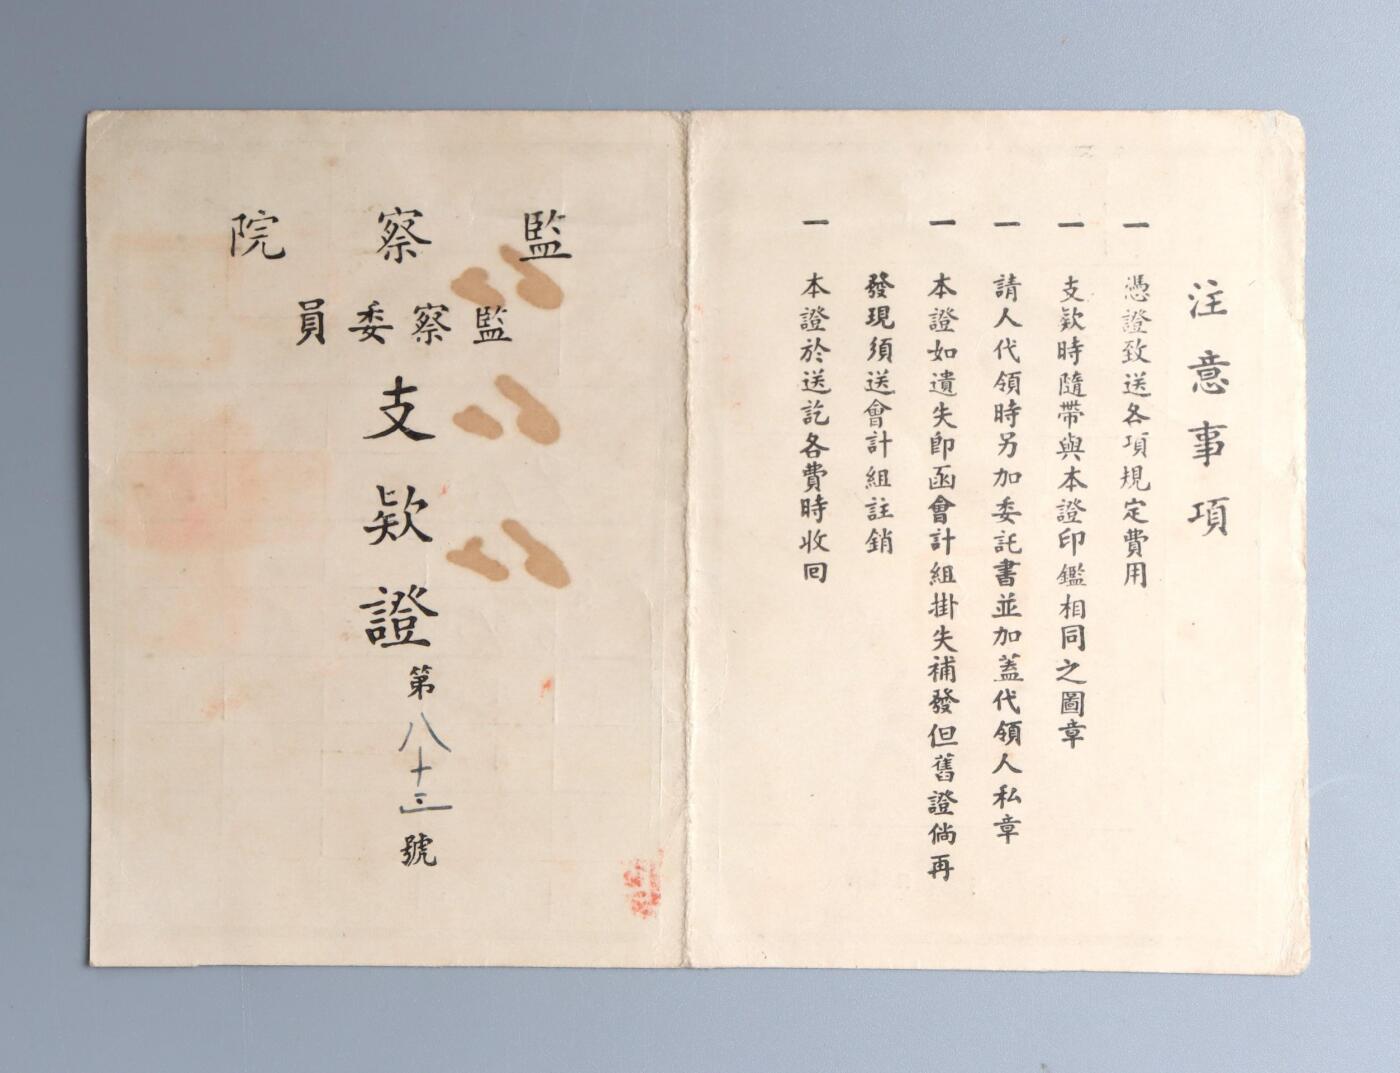 注意事項
一 憑證致送各項規定費用
一 支欵時隨帶與本證印鑑相同之圖章
一 請人代領時另加委託書並加蓋代領人私章
一 本證如遺失卽函會計組掛失補發但舊證倘再
發現須送會計組註銷
一 本證於送訖各費時收回
監察院
監察委員
支欵證
第八十三號